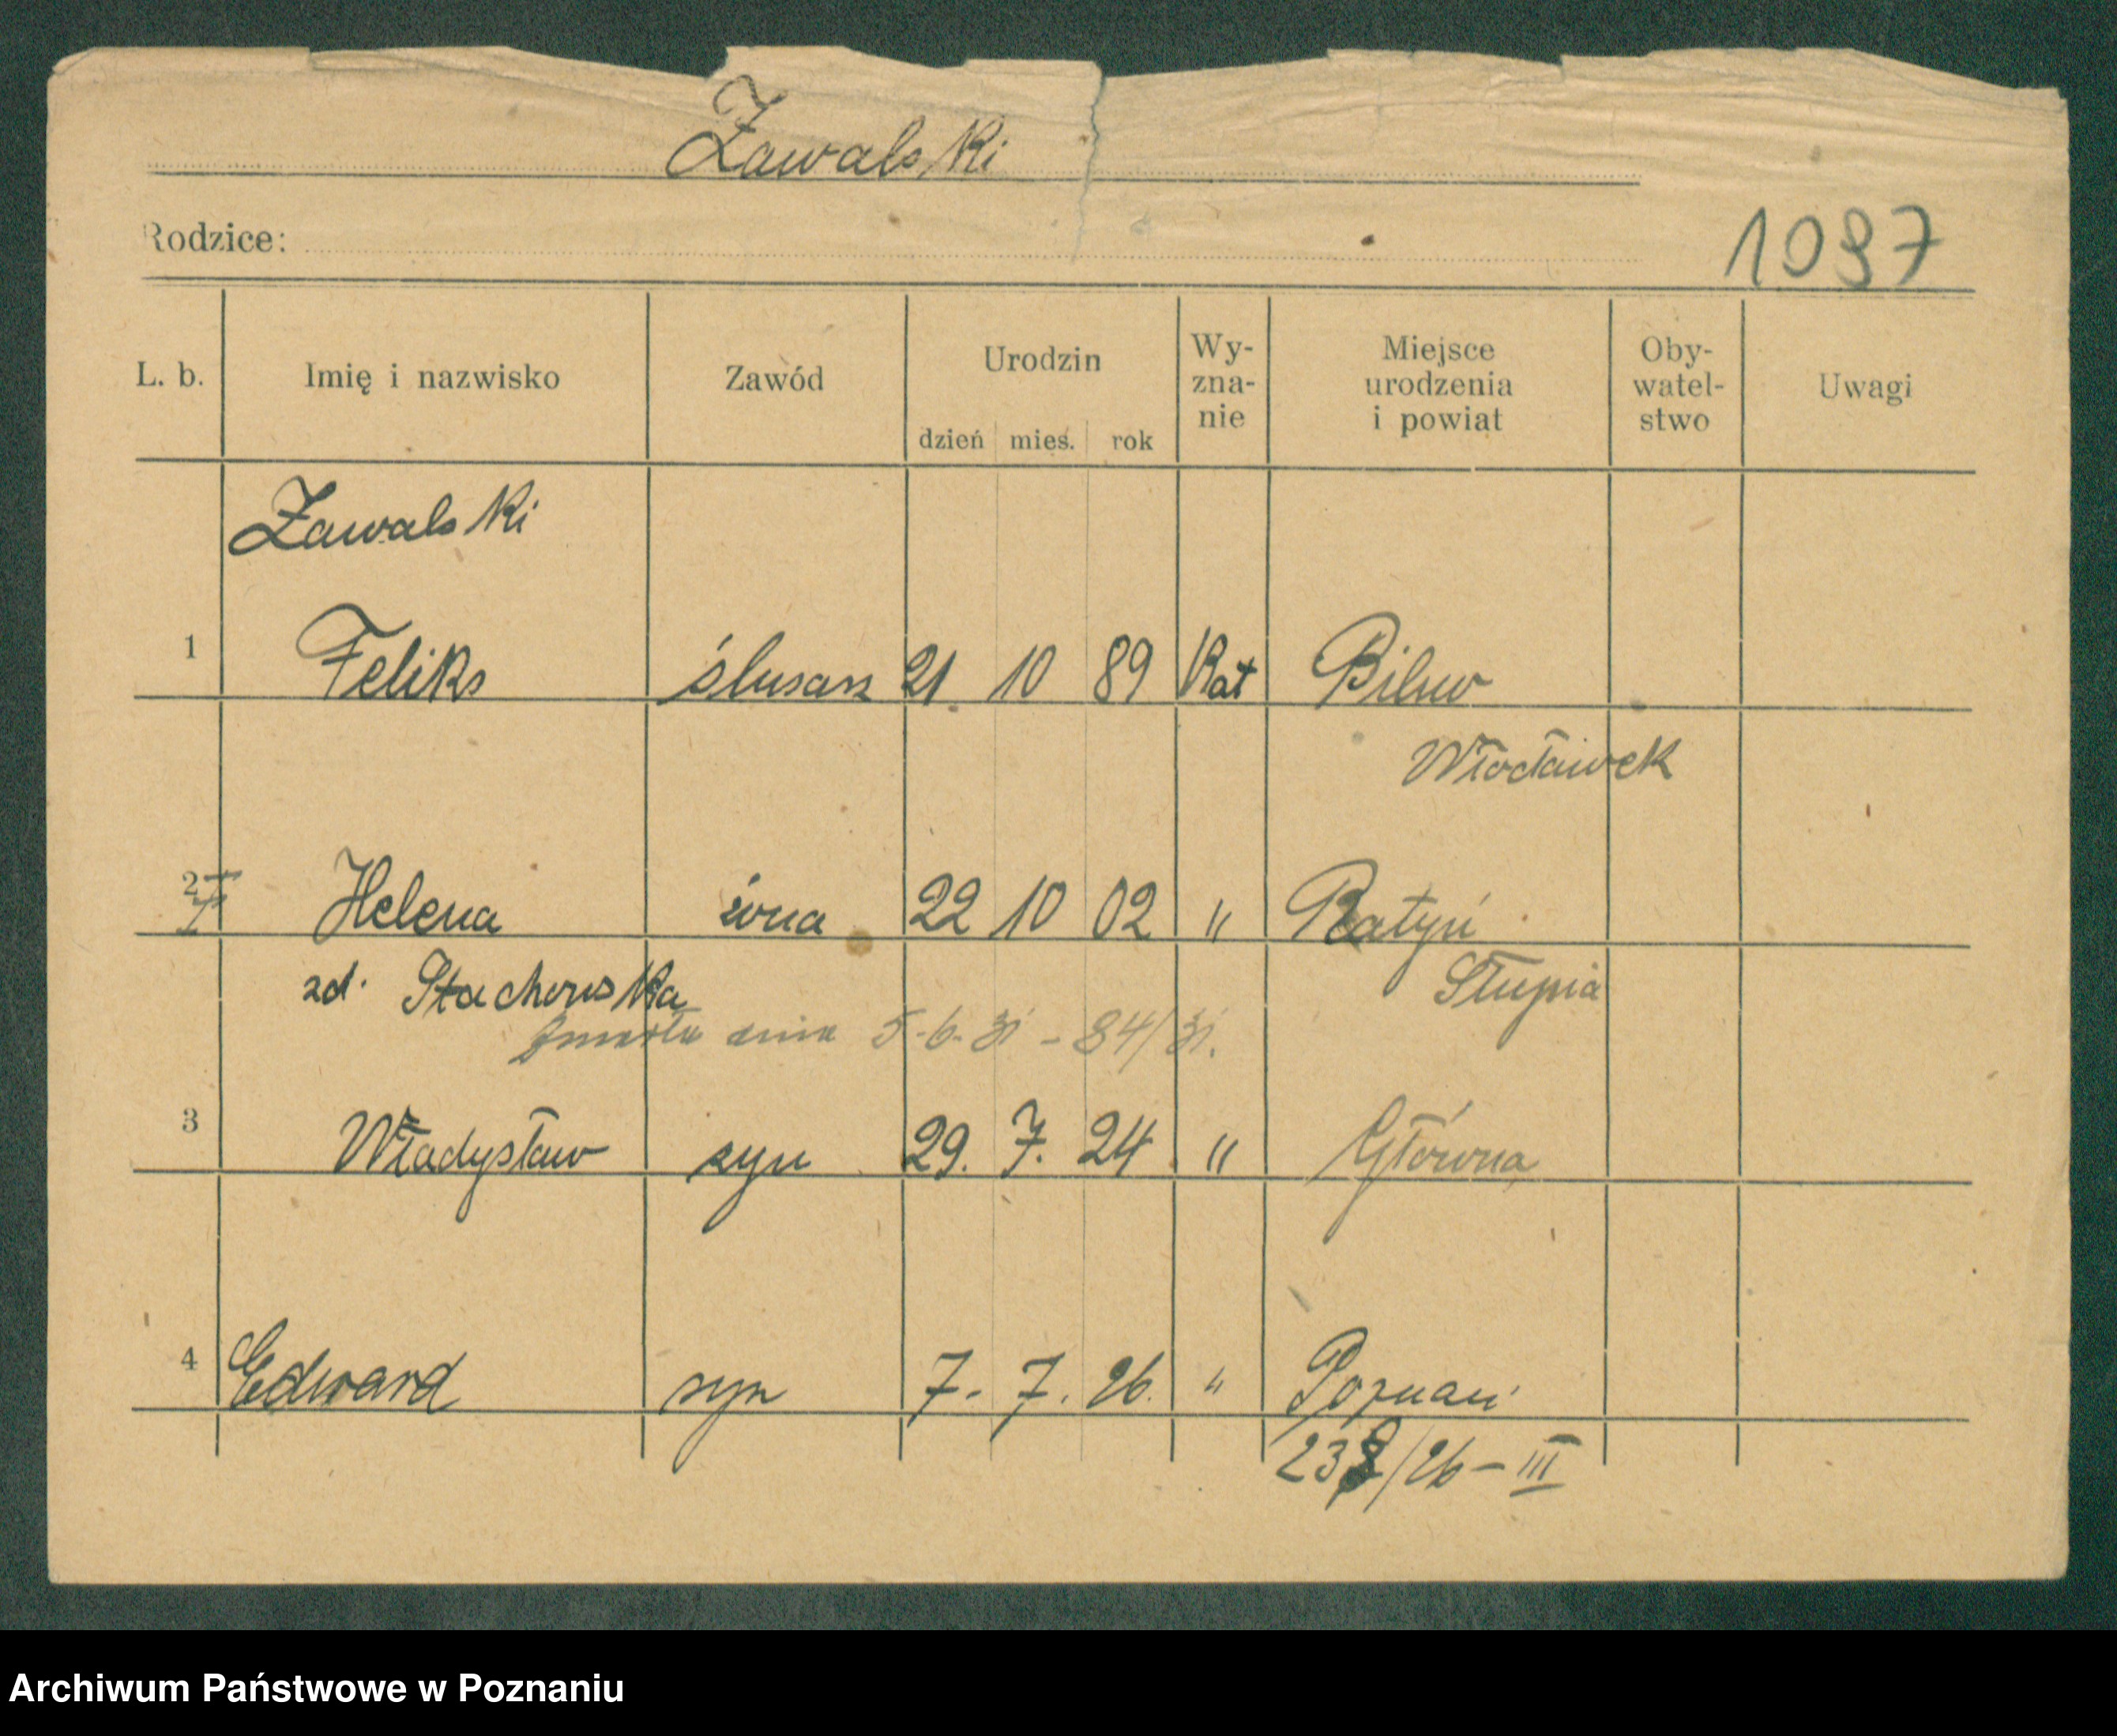 Zawalski
Rodzice:
1097
L. b. Imię i nazwisko Zawód Urodzin dzień mies. rok Wy-zna-nie Miejsce urodzenia i powiat Oby-watel-stwo Uwagi
Zawalski
1 Feliks ślusarz 21 10 89 Kat
Włocławek
2 Helena żona 22 10 02 " Ratyń
zd. Stachowska Słupia
zmarła dnia 5-6-31 - 84/31.
3 Władysław syn 29. 7. 24 " Główna
4 Edward syn 7. 7. 26. " Poznań
/26 - III
Archiwum Państwowe w Poznaniu